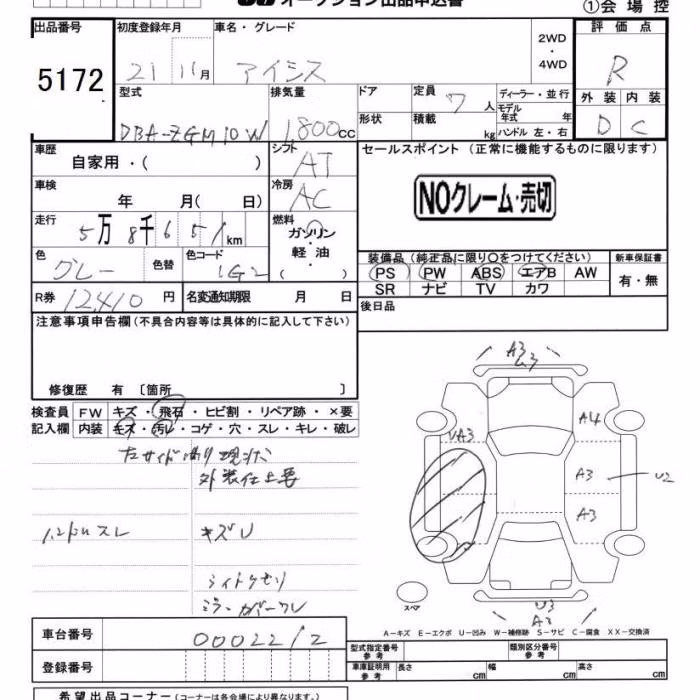 オークション出品申込書
①会場控
出品番号
5172
初度登録年月
21 11月
車名・グレード
アイシス
2WD
・
4WD
評価点
R
外装 内装
D C
型式
DBA-ZGM10W
排気量
1,800cc
ドア
形状
定員 7 人
積載 kg
ディーラー・並行
モデル年式 年
ハンドル 左・右
車歴
自家用・( )
シフト
AT
セールスポイント (正常に機能するものに限ります)
NOクレーム・売切
車検
年 月( 日)
冷房
AC
走行
5万8千651km
燃料
ガソリン
軽油
( )
色
グレー
色替
色コード
1G2
装備品 (純正品に限り○をつけてください)
PS PW ABS エアB AW
SR ナビ TV カワ
新車保証書
有・無
R券 12,410円
名変通知期限 月 日
後日品
注意事項申告欄 (不具合内容等は具体的に記入して下さい)
修復歴 有 〔箇所 〕
検査員 FW キズ・飛石・ヒビ割・リペア跡・×要
記入欄 内装 キズ・汚レ・コゲ・穴・スレ・キレ・破レ
外装仕上要
スレ
キズU
ライトクモリ
ミラーカバーワレ
A3
A4
UA3
A3
U2
A3
U3
A3
スペア
A-キズ E-エクボ U-凹み W-補修跡 S-サビ C-腐食 XX-交換済
車台番号 0002212
登録番号
型式指定番号 参考
類別区分番号 参考
車庫証明用 参考 長さ cm 幅 cm 高さ cm
希望出品コーナー (コーナーは各会場により異なります。)